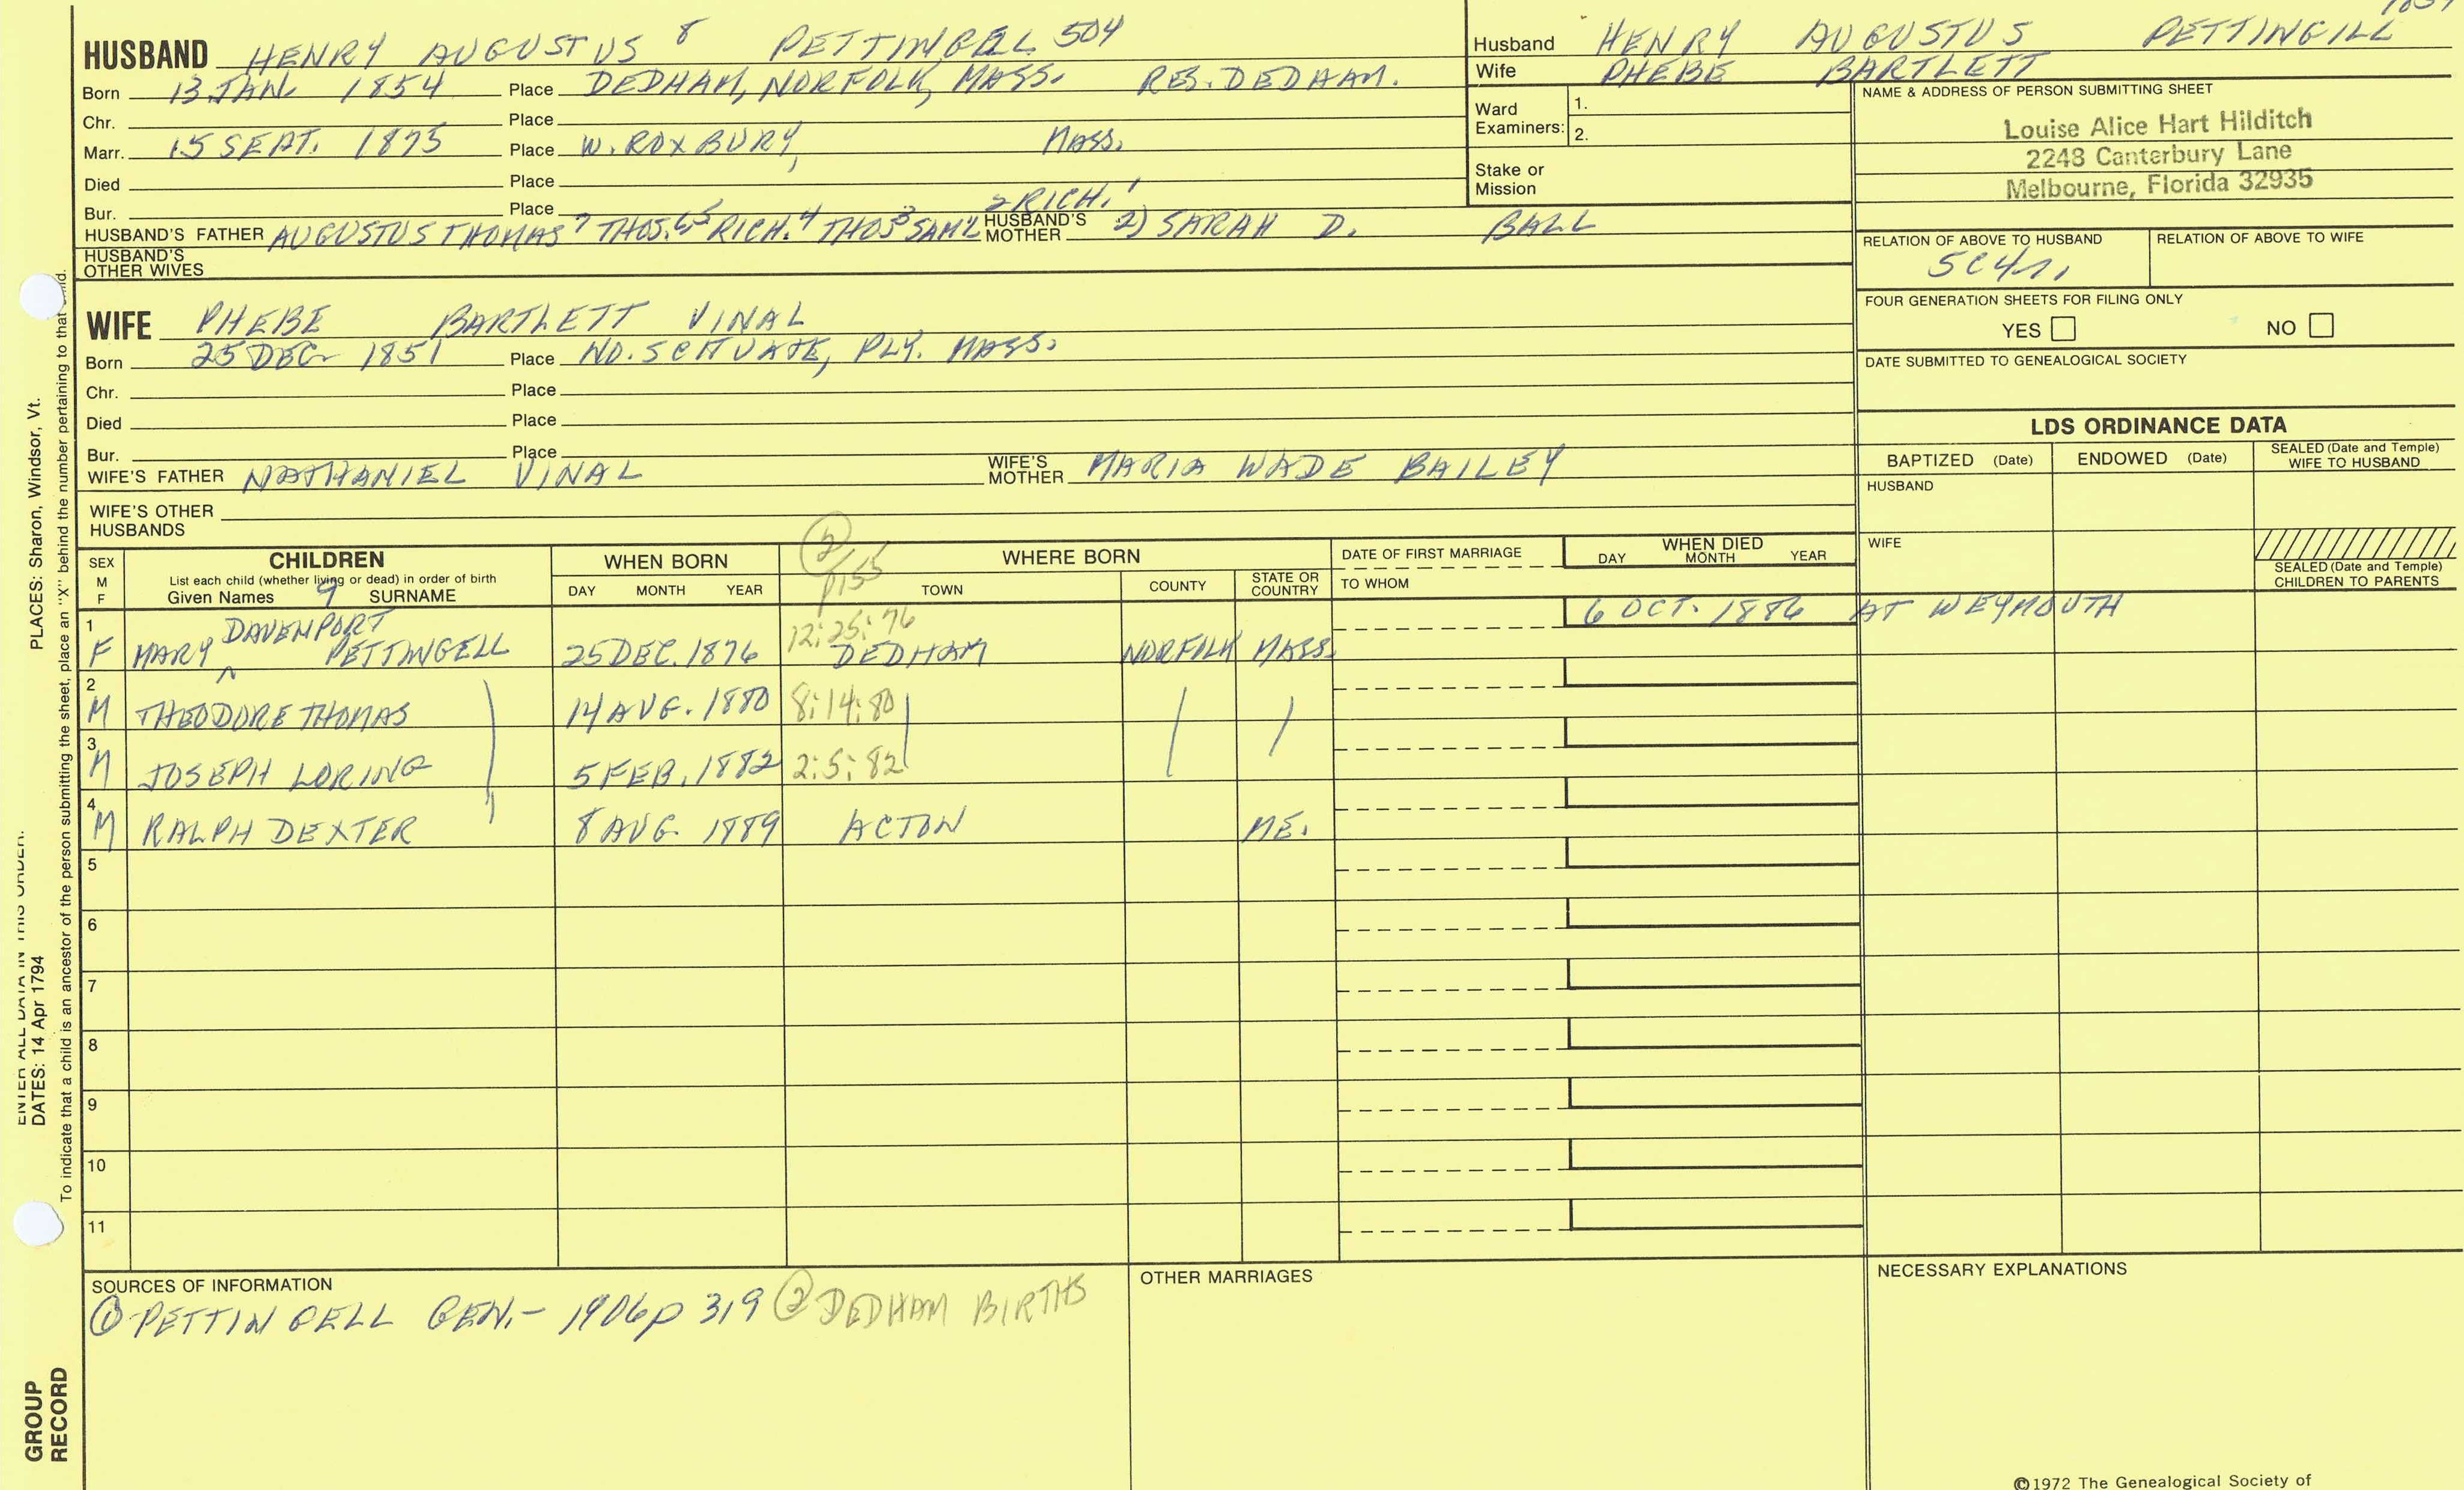 HUSBAND HENRY AUGUSTUS 8 PETTINGELL 504
Born 13 JAN. 1854 Place DEDHAM, NORFOLK, MASS. RES. DEDHAM.
Chr. Place
Marr. 15 SEPT. 1875 Place W. ROXBURY, MASS.
Died Place
Bur. Place 2 RICH. 1
HUSBAND'S FATHER AUGUSTUS THOMAS 7 THOS. 6 5 RICH. 4 THOS 3 SAM'L HUSBAND'S MOTHER 2) SARAH D. BALL
HUSBAND'S OTHER WIVES
Husband HENRY AUGUSTUS PETTINGILL
Wife PHEBE BARTLETT
Ward Examiners: 1.
2.
Stake or Mission
NAME & ADDRESS OF PERSON SUBMITTING SHEET
Louise Alice Hart Hilditch
2248 Canterbury Lane
Melbourne, Florida 32935
RELATION OF ABOVE TO HUSBAND RELATION OF ABOVE TO WIFE
5C4R
FOUR GENERATION SHEETS FOR FILING ONLY
YES NO
DATE SUBMITTED TO GENEALOGICAL SOCIETY
WIFE PHEBE BARTLETT VINAL
Born 25 DEC 1851 Place NO. SCITUATE, PLY. MASS.
Chr. Place
Died Place
Bur. Place
WIFE'S FATHER NATHANIEL VINAL WIFE'S MOTHER MARIA WADE BAILEY
WIFE'S OTHER HUSBANDS
LDS ORDINANCE DATA
BAPTIZED (Date) ENDOWED (Date) SEALED (Date and Temple) WIFE TO HUSBAND
HUSBAND
WIFE
SEALED (Date and Temple) CHILDREN TO PARENTS
SEX M F
CHILDREN
List each child (whether living or dead) in order of birth
Given Names 9 SURNAME
WHEN BORN
DAY MONTH YEAR
2 P155
WHERE BORN
TOWN COUNTY STATE OR COUNTRY
DATE OF FIRST MARRIAGE
TO WHOM
WHEN DIED
DAY MONTH YEAR
1 DAVENPORT 12:25:76 6 OCT. 1886 AT WEYMOUTH
F MARY ^ PETTINGELL 25 DEC. 1876 DEDHAM NORFOLK MASS.
2
M THEODORE THOMAS 14 AUG. 1880 8:14:80
3
M JOSEPH LORING 5 FEB. 1882 2:5:82
4
M RALPH DEXTER " 8 AUG. 1889 ACTON ME.
5
6
7
8
9
10
11
SOURCES OF INFORMATION
1 PETTINGELL GEN.- 1906 p 319 2 DEDHAM BIRTHS
OTHER MARRIAGES
NECESSARY EXPLANATIONS
©1972 The Genealogical Society of
DATES: 14 Apr 1794
PLACES: Sharon, Windsor, Vt.
To indicate that a child is an ancestor of the person submitting the sheet, place an "X" behind the number pertaining to that child.
GROUP RECORD